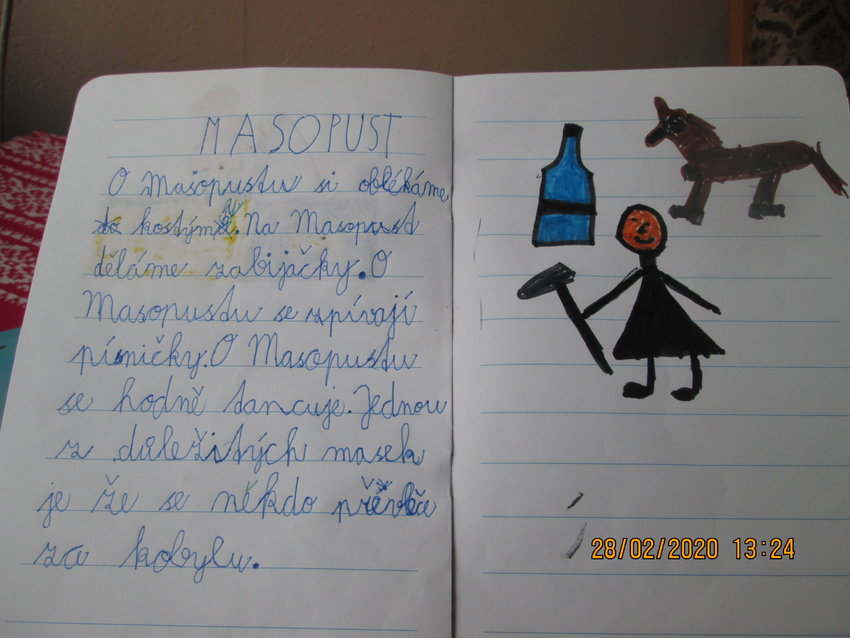 MASOPUST
O Masopustu si oblékáme
kostýmy. Na Masopust
děláme zabijačky. O
Masopustu se zpívají
písničky. O Masopustu
se hodně tancuje. Jednou
z důležitých masek
je že se někdo převleče
za kobylu.
28/02/2020 13:24